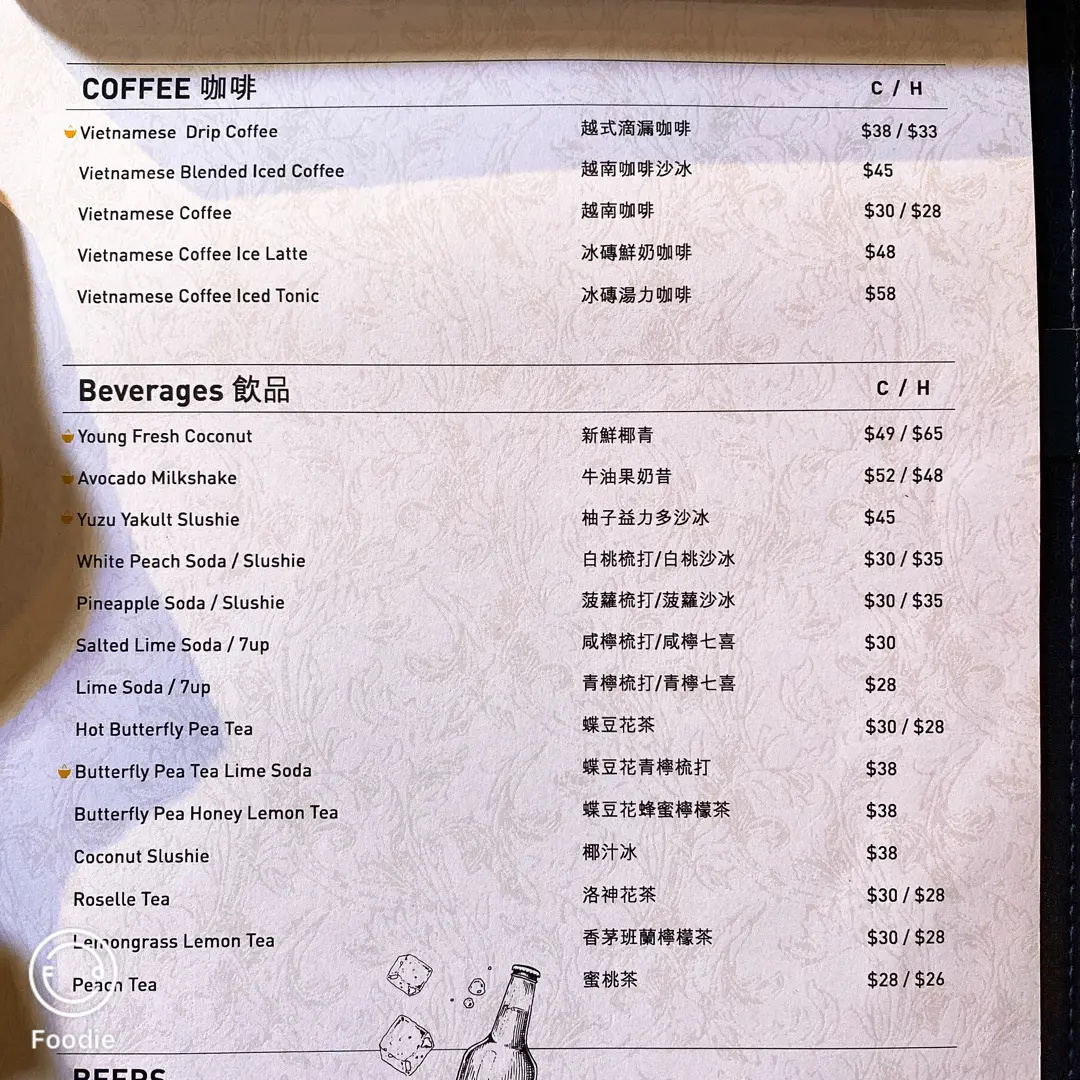 COFFEE 咖啡 C / H
Vietnamese Drip Coffee 越式滴漏咖啡 $38 / $33
Vietnamese Blended Iced Coffee 越南咖啡沙冰 $45
Vietnamese Coffee 越南咖啡 $30 / $28
Vietnamese Coffee Ice Latte 冰磚鮮奶咖啡 $48
Vietnamese Coffee Iced Tonic 冰磚湯力咖啡 $58
Beverages 飲品 C / H
Young Fresh Coconut 新鮮椰青 $49 / $65
Avocado Milkshake 牛油果奶昔 $52 / $48
Yuzu Yakult Slushie 柚子益力多沙冰 $45
White Peach Soda / Slushie 白桃梳打/白桃沙冰 $30 / $35
Pineapple Soda / Slushie 菠蘿梳打/菠蘿沙冰 $30 / $35
Salted Lime Soda / 7up 咸檸梳打/咸檸七喜 $30
Lime Soda / 7up 青檸梳打/青檸七喜 $28
Hot Butterfly Pea Tea 蝶豆花茶 $30 / $28
Butterfly Pea Tea Lime Soda 蝶豆花青檸梳打 $38
Butterfly Pea Honey Lemon Tea 蝶豆花蜂蜜檸檬茶 $38
Coconut Slushie 椰汁冰 $38
Roselle Tea 洛神花茶 $30 / $28
Lemongrass Lemon Tea 香茅班蘭檸檬茶 $30 / $28
Peach Tea 蜜桃茶 $28 / $26
Foodie
BEERS